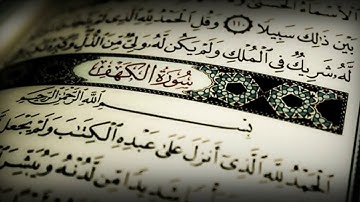 بَيْنَ ذَٰلِكَ سَبِيلًا ١١٠ وَقُلِ الْحَمْدُ لِلَّهِ الَّذِي
لَهُ شَرِيكٌ فِي الْمُلْكِ وَلَمْ يَكُن لَّهُ وَلِيٌّ مِّنَ الذُّلِّ وَكَبِّرْهُ
سُورَةُ الْكَهْفِ
بِسْمِ اللَّهِ الرَّحْمَٰنِ الرَّحِيمِ
الْحَمْدُ لِلَّهِ الَّذِي أَنزَلَ عَلَىٰ عَبْدِهِ الْكِتَابَ وَلَمْ يَجْعَل
شَدِيدًا مِّن لَّدُنْهُ وَيُبَشِّرَ